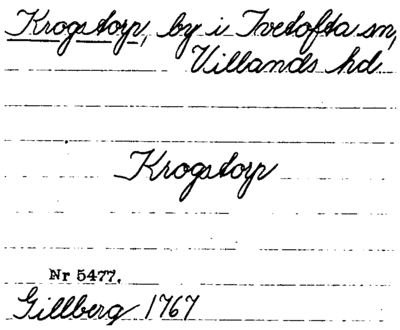 Krogstorp, by i Ivetofta sn,
Villands hd
Krogstorp
Nr 5477.
Gillberg 1767